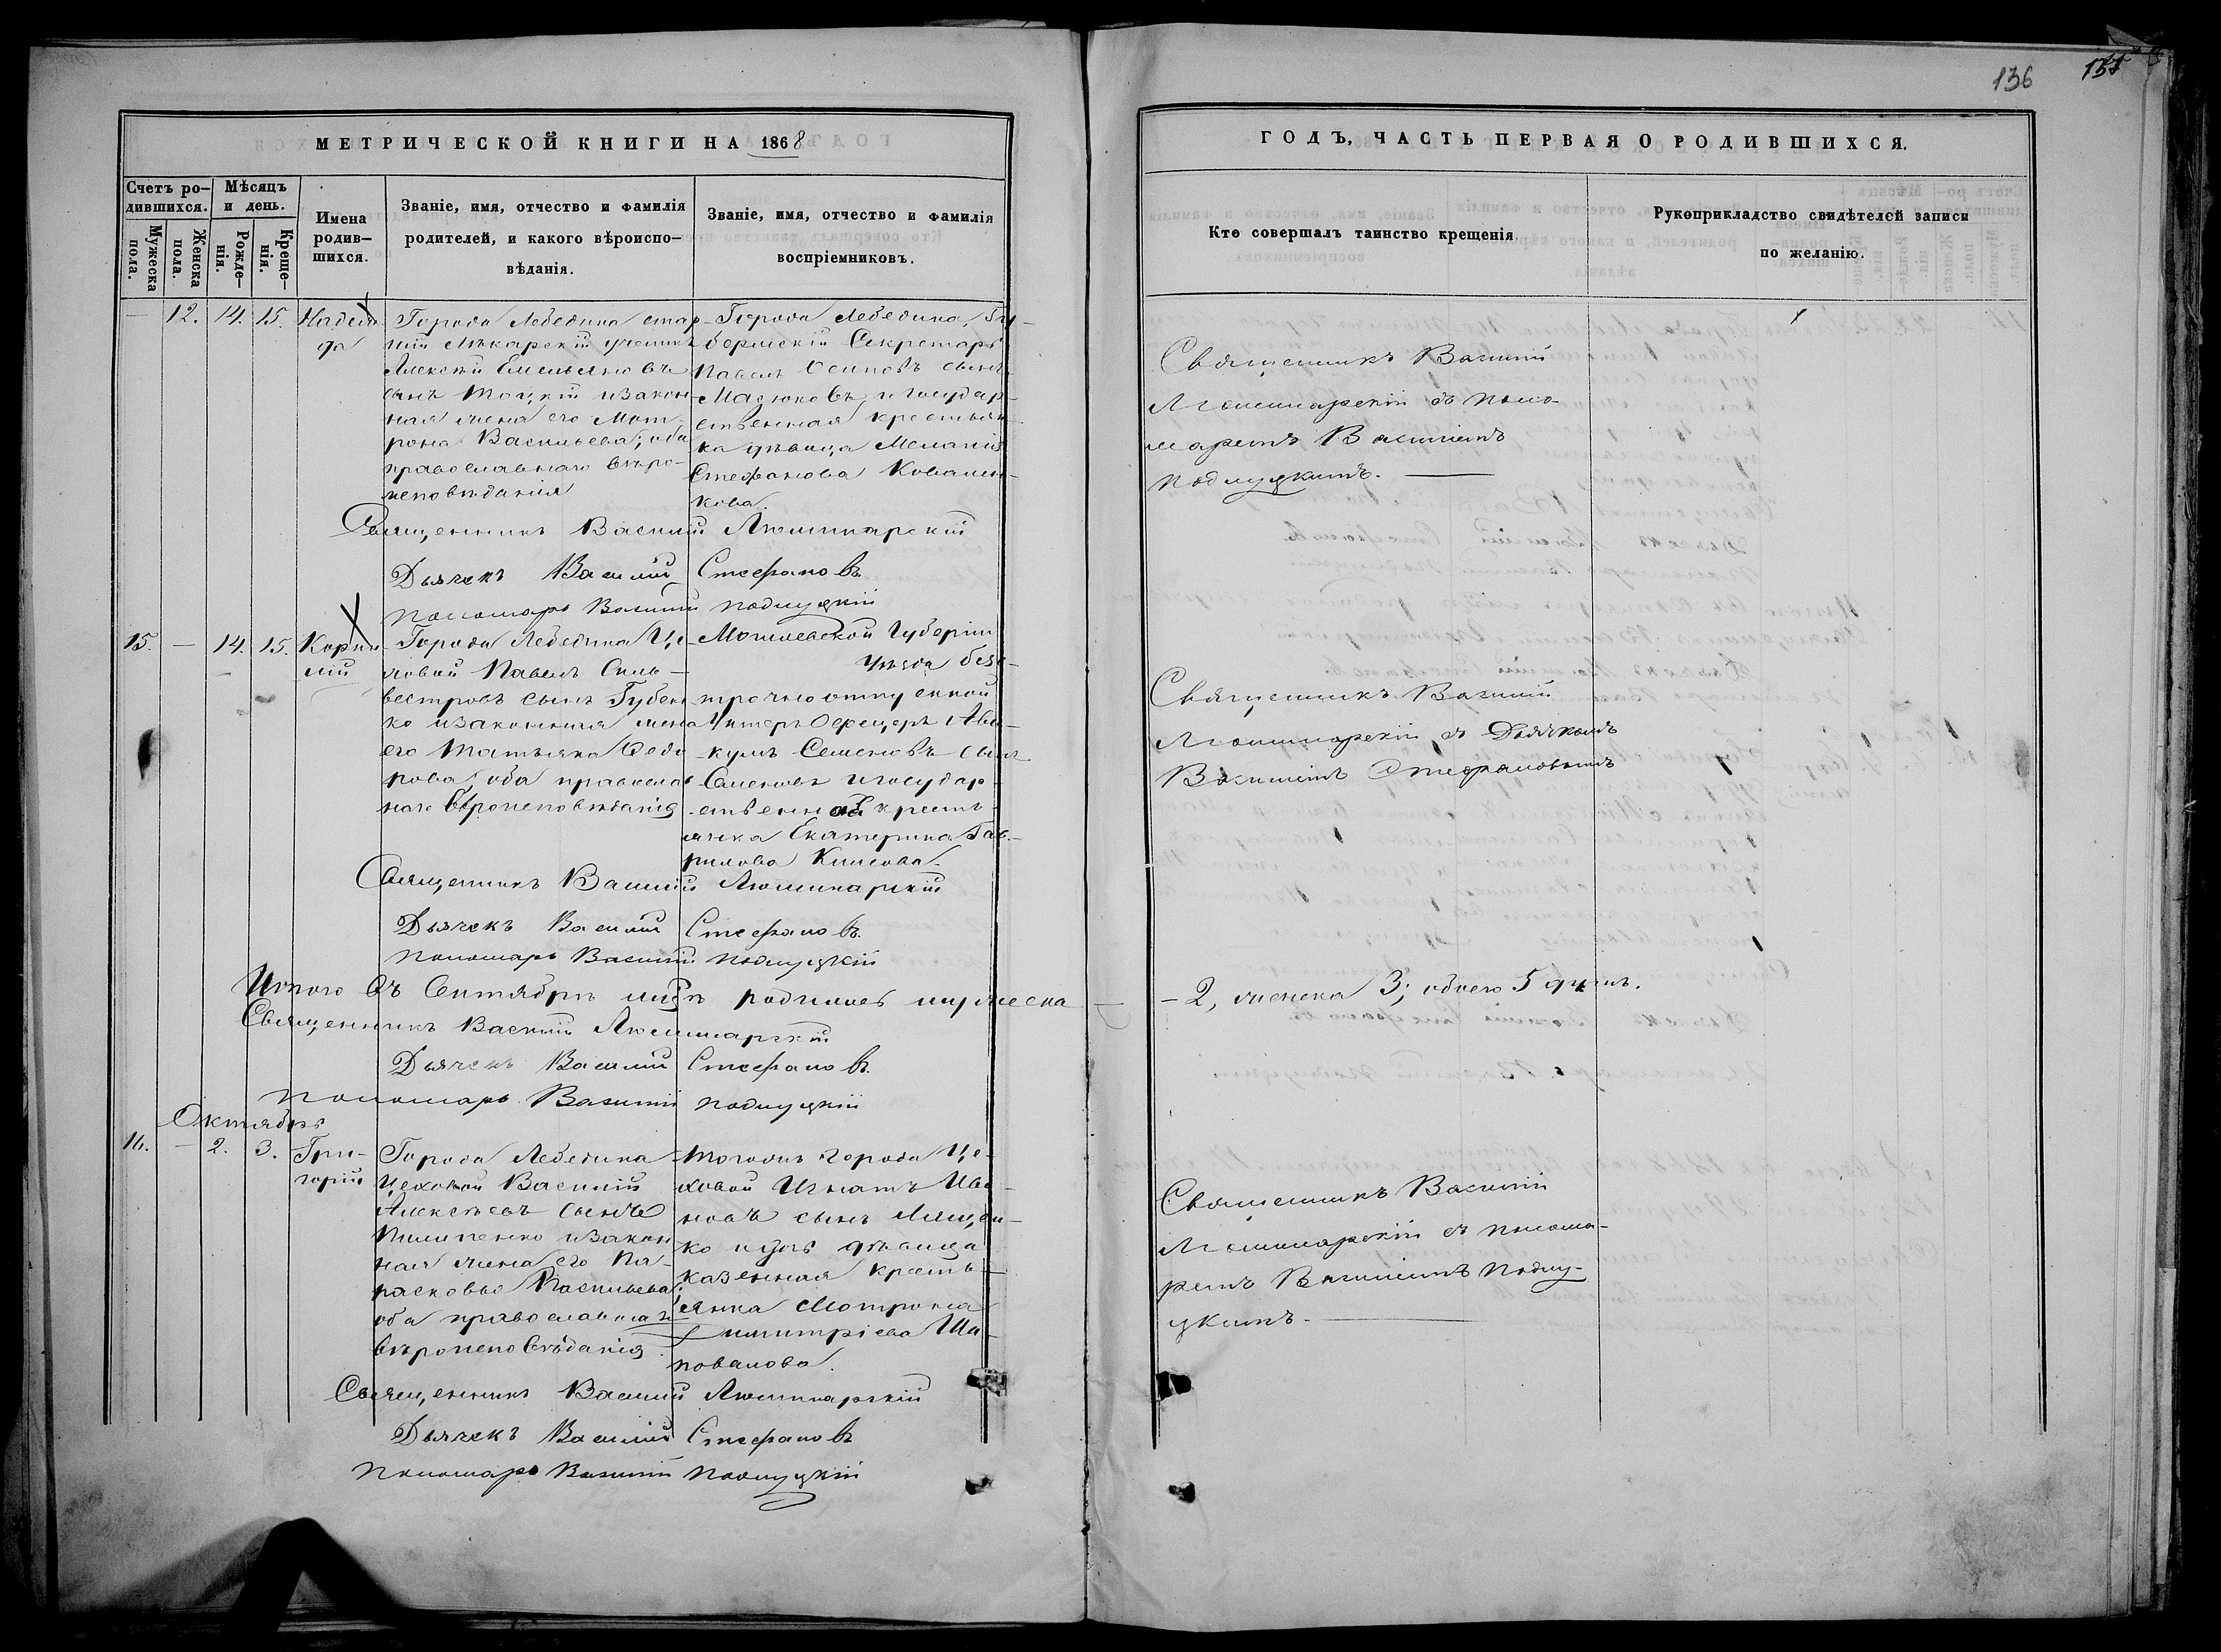 136
137
МЕТРИЧЕСКОЙ КНИГИ НА 1868
ГОДЪ, ЧАСТЬ ПЕРВАЯ О РОДИВШИХСЯ.
Счетъ ро-
дившихся.
Мужеска
пола.
Женска
пола.
Мѣсяцъ
и день.
Рожде-
нія.
Креще-
нія.
Имена
родив-
шихся.
Званіе, имя, отчество и фамилія
родителей, и какого вѣроиспо-
вѣданія.
Званіе, имя, отчество и фамилія
воспріемниковъ.
Кто совершалъ таинство крещенія
Рукоприкладство свидѣтелей записи
по желанію.
— 12. 14. 15. Надеж
да
Города Лебедина стар
шій лѣкарскій ученикъ
Алексѣй Емельяновъ
сынъ изакон
ная жена его Мот
рона Васильева; оба
православнаго вѣро-
исповѣданія
Города Лебедина, Гу-
бернскій Секретарь
Павелъ Осиповъ сынъ
Масюковъ, и государ
ственная крестьян
ка дѣвица Меланія
Стефанова Ковален-
кова.
Священникъ Василій
съ поно-
маремъ Василіемъ
Подлуцкимъ.
Священникъ Василій
Дьячекъ Василій Стефановъ
Пономарь Василій Подлуцкій
15. — 14. 15. Корни
лій
Города Лебедина Це
ховой Павелъ Силь-
вестровъ сынъ Губен
ко изаконная жена
его Татьяна Федо
рова, оба православ
наго вѣроисповѣданія
Могилевской Губерніи
Уѣзда без-
срочноотпускной
Унтеръ Офецеръ Ава-
кумъ Семеновъ сынъ
Семеновъ игосудар-
ственная кресть-
янка Екатерина Гав-
рилова
Священникъ Василій
съ Дьячкомъ
Василіемъ Стефановымъ
Священникъ Василій
Дьячекъ Василій Стефановъ
Пономарь Василій Подлуцкій
Итого въ Сентябрѣ мцѣ родилось мужеска — 2, женска 3; обоего 5 душъ.
Священникъ Василій
Дьячекъ Василій Стефановъ
Пономарь Василій Подлуцкій
Октябрь
16. — 2. 3. Гри-
горій
Города Лебедина
Цеховой Василій
Алексѣевъ сынъ
Пилипенко изакон
ная жена его Па-
расковья Васильева;
оба православнаго
вѣроисповѣданія
Тогожъ города Це-
ховой Игнатъ Ива-
новъ сынъ Лящен-
ко и дѣвица
казенная кресть-
янка Мотрона
Димитріева Ша-
повалова.
Священникъ Василій
съ понома-
ремъ Василіемъ Подлу-
цкимъ.
Священникъ Василій
Дьячекъ Василій Стефановъ
Пономарь Василій Подлуцкій